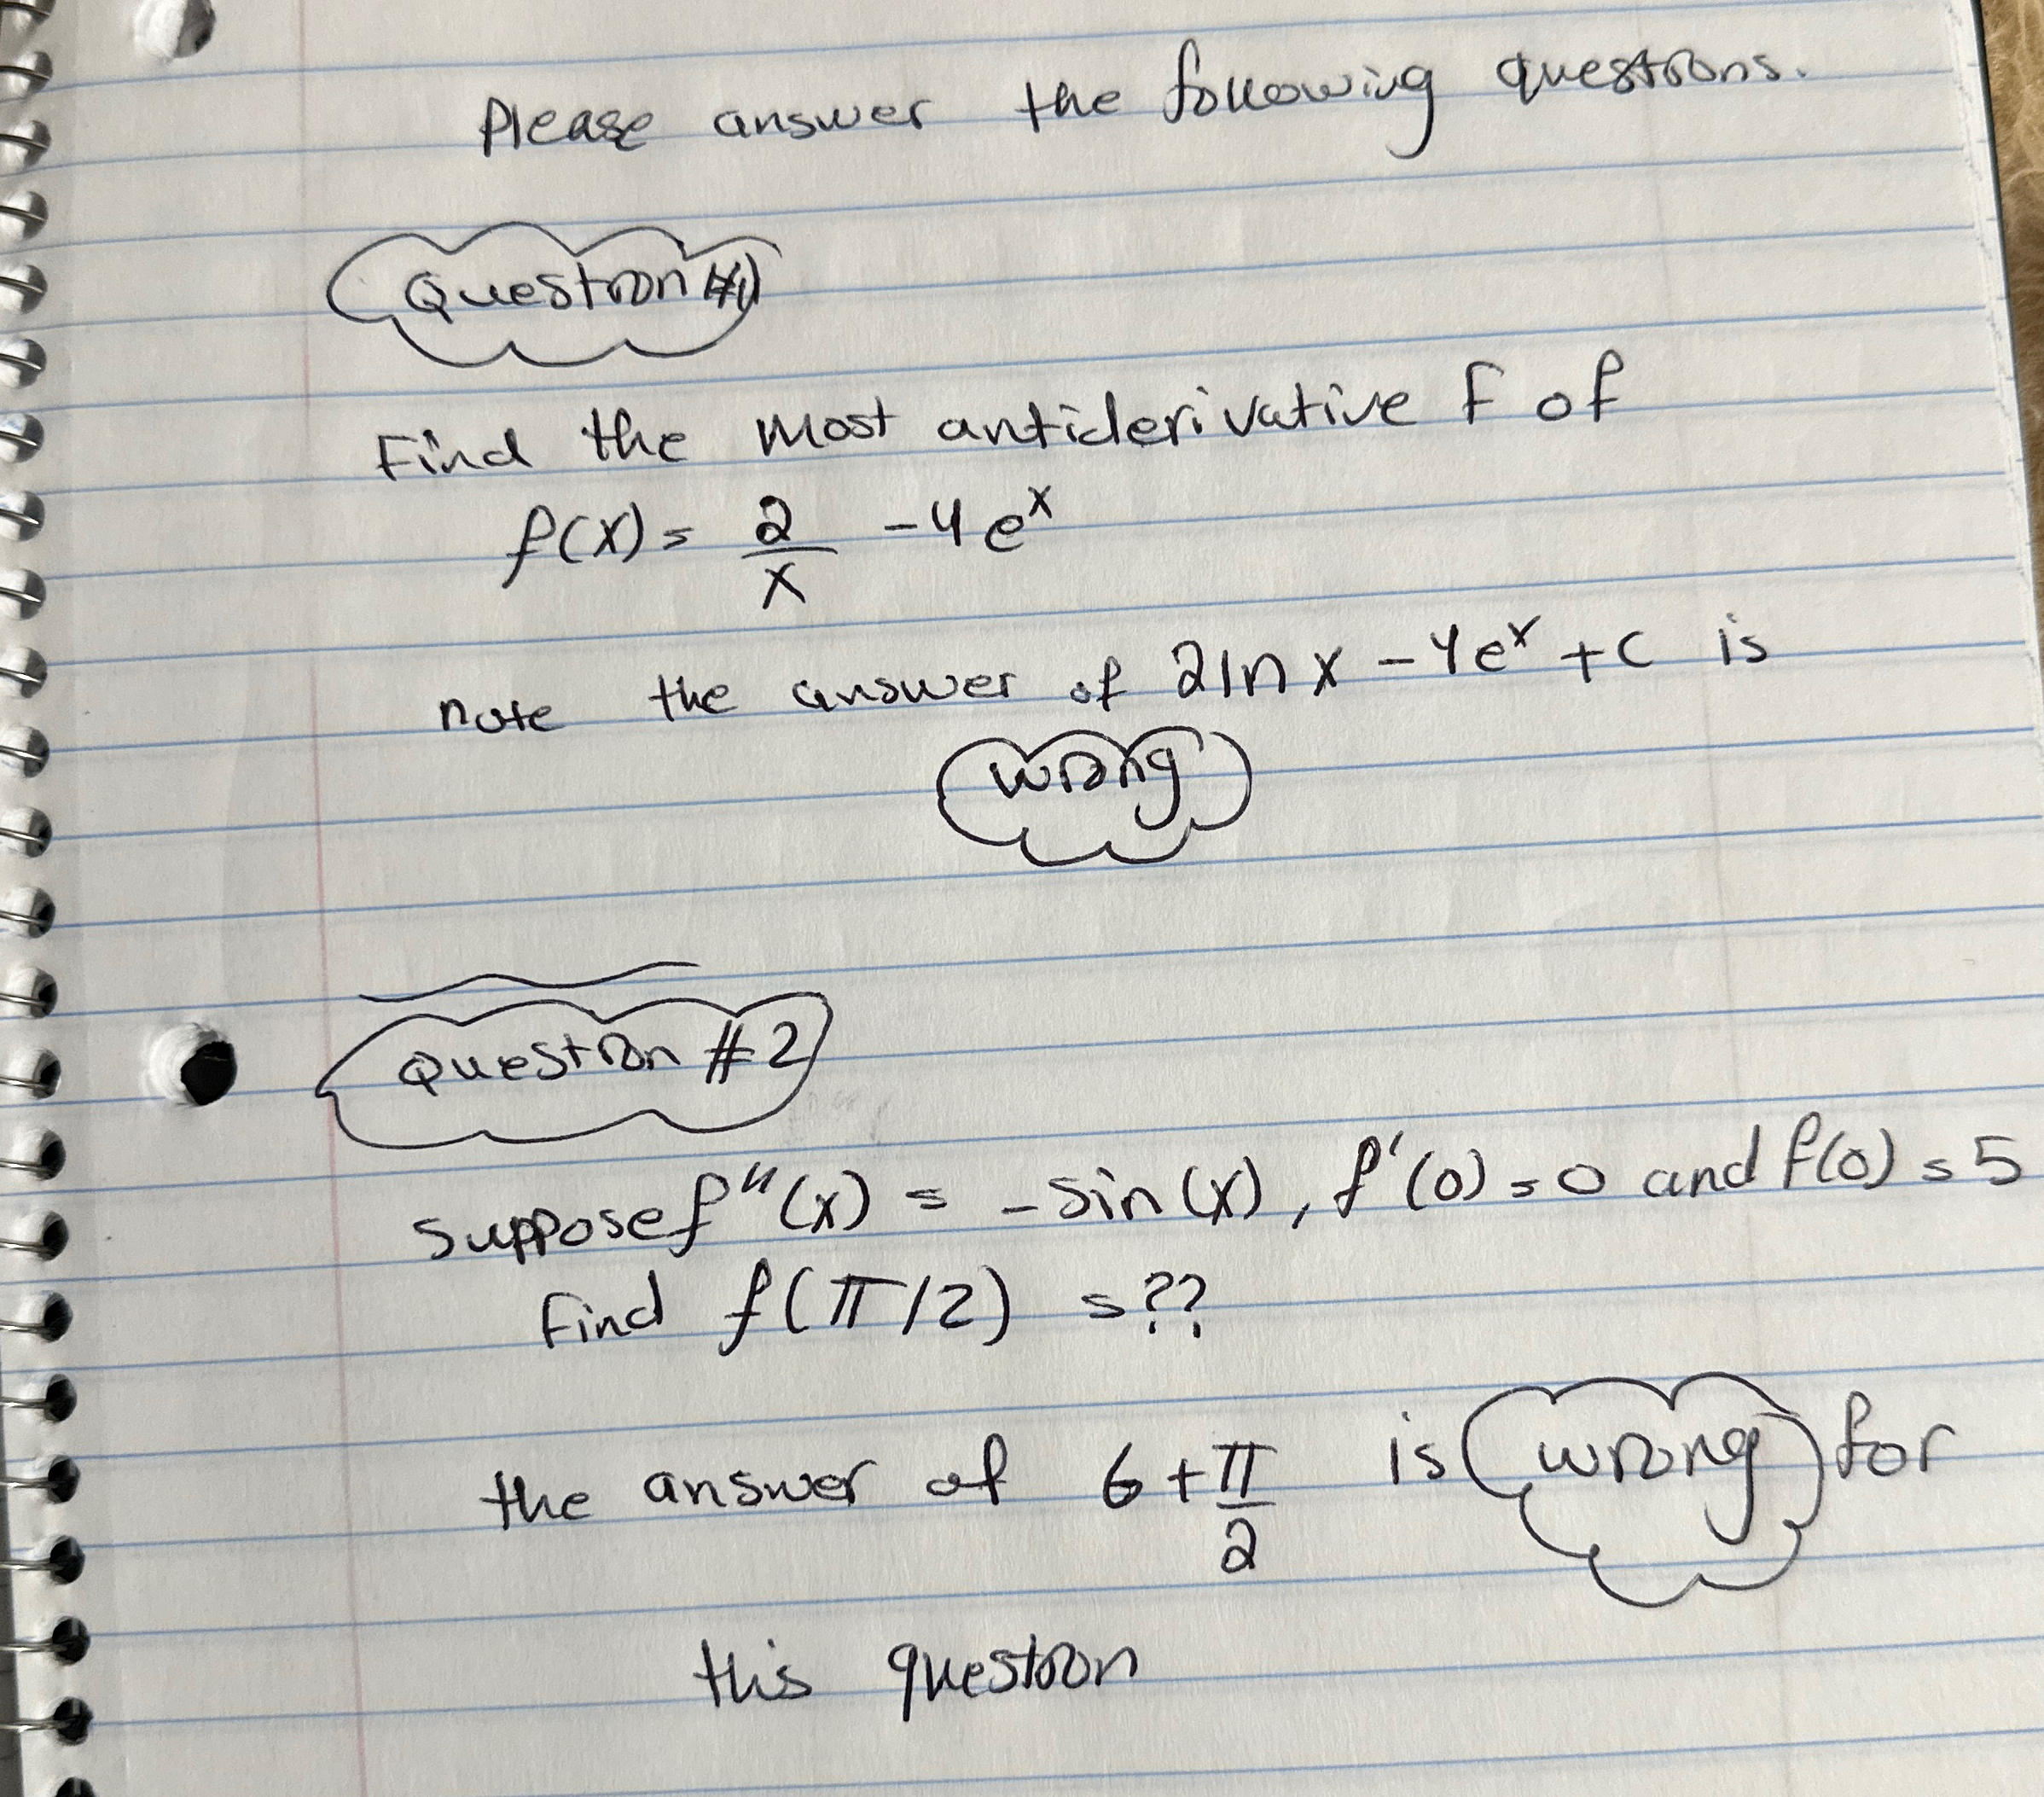 Please answer the following questions.
Question #1
Find the most antiderivative F of
f(x) = 2/x - 4e^x
note the answer of 2ln x - 4e^x + c is
wrong
Question #2
suppose f''(x) = - sin(x), f'(0) = 0 and f(0) = 5
Find f(π/2) = ??
the answer of 6 + π/2 is wrong for
this question